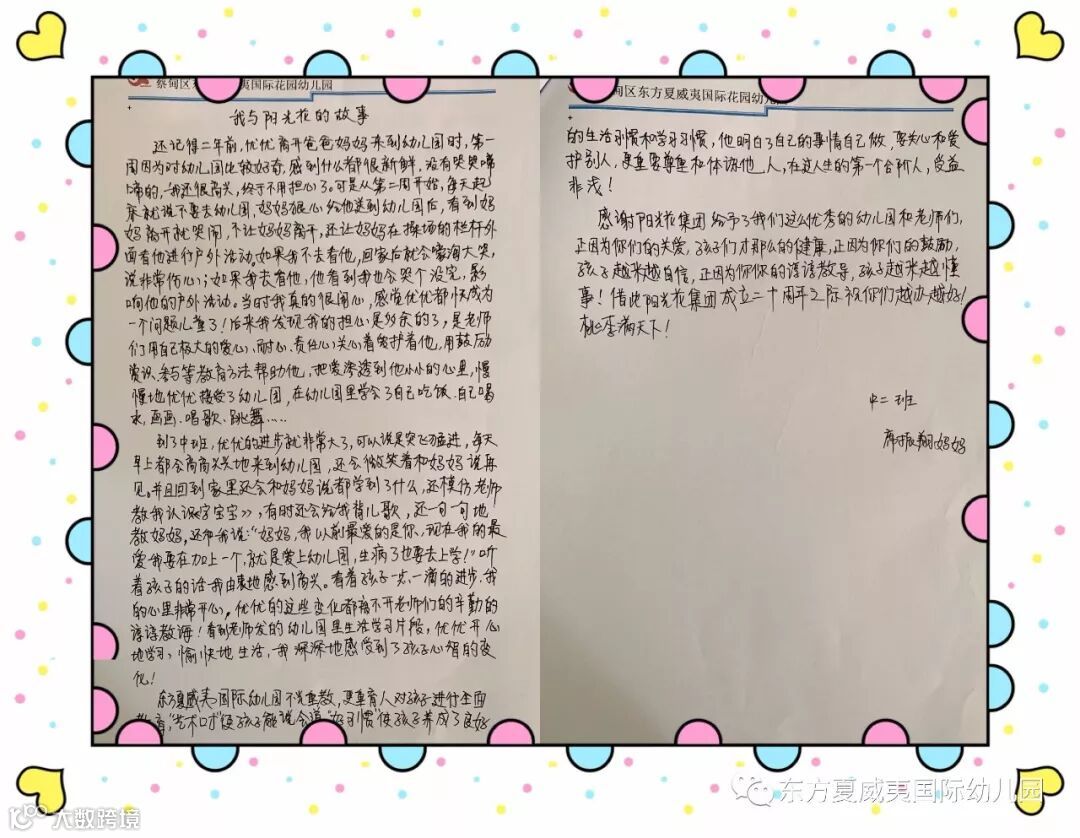 蔡甸区东方夏威夷国际花园幼儿园
我与阳光花的故事
还记得二年前,优优离开爸爸妈妈来到幼儿园时,第一
周因为对幼儿园比较好奇,感到什么都很新鲜,没有哭哭啼
啼的,我还很高兴,终于不用担心了。可是从第二周开始,每天起
床就说不要去幼儿园,妈妈狠心给他送到幼儿园后,看到妈
妈离开就哭闹,不让妈妈离开,还让妈妈在操场的栏杆外
面看他进行户外活动。如果我不去看他,回家后就会嚎淘大哭,
说非常伤心;如果我去看他,他看到我也会哭个没完,影
响他的户外活动。当时我真的很闹心,感觉优优都快成为
一个问题儿童了!后来我发现我的担心是多余的了,是老师
们用自己极大的爱心、耐心、责任心关心着爱护着他,用鼓励
赏识参与等教育方法帮助他,把爱渗透到他小小的心里,慢
慢地优优接受了幼儿园,在幼儿园里学会了自己吃饭、自己喝
水,画画、唱歌、跳舞.....
到了中班,优优的进步就非常大了,可以说是突飞猛进,每天
早上都会高高兴兴地来到幼儿园,还会微笑着和妈妈说再
见。并且回到家里还会和妈妈说都学到了什么,还模仿老师
教我认识《字宝宝》,有时还会给我背儿歌,还一句一句地
教妈妈,还和我说:“妈妈,我以前最爱的是你,现在我的最
爱我要在加上一个,就是爱上幼儿园,生病了也要去上学!”听
着孩子的话我由衷地感到高兴。看着孩子一点一滴的进步,我
的心里非常开心,优优的这些变化都离不开老师们的辛勤的
谆谆教诲!看到老师发的幼儿园里生活学习片段,优优开心
地学习,愉快地生活,我深深地感受到了孩子心智的变
化!
东方夏威夷国际幼儿园不光重教,更重育人对孩子进行全面
教育,“艺术口才”使孩子能说会道“好习惯”使孩子养成了良好
甸区东方夏威夷国际花园幼儿园
的生活习惯和学习习惯,他明白了自己的事情自己做,要关心和爱
护别人,更重要尊重和体谅他人,在这人生的第一个台阶人,受益
非浅!
感谢阳光花集团给予了我们这么优秀的幼儿园和老师们,
正因为你们的关爱,孩子们才那么的健康,正因为你们的鼓励,
孩子越来越自信,正因为你你的谆谆教导,孩子越来越懂
事!借此阳光花集团成立二十周年之际祝你们越办越好!
桃李满天下!
中二班
席振翔妈妈
东方夏威夷国际幼儿园
大数跨境